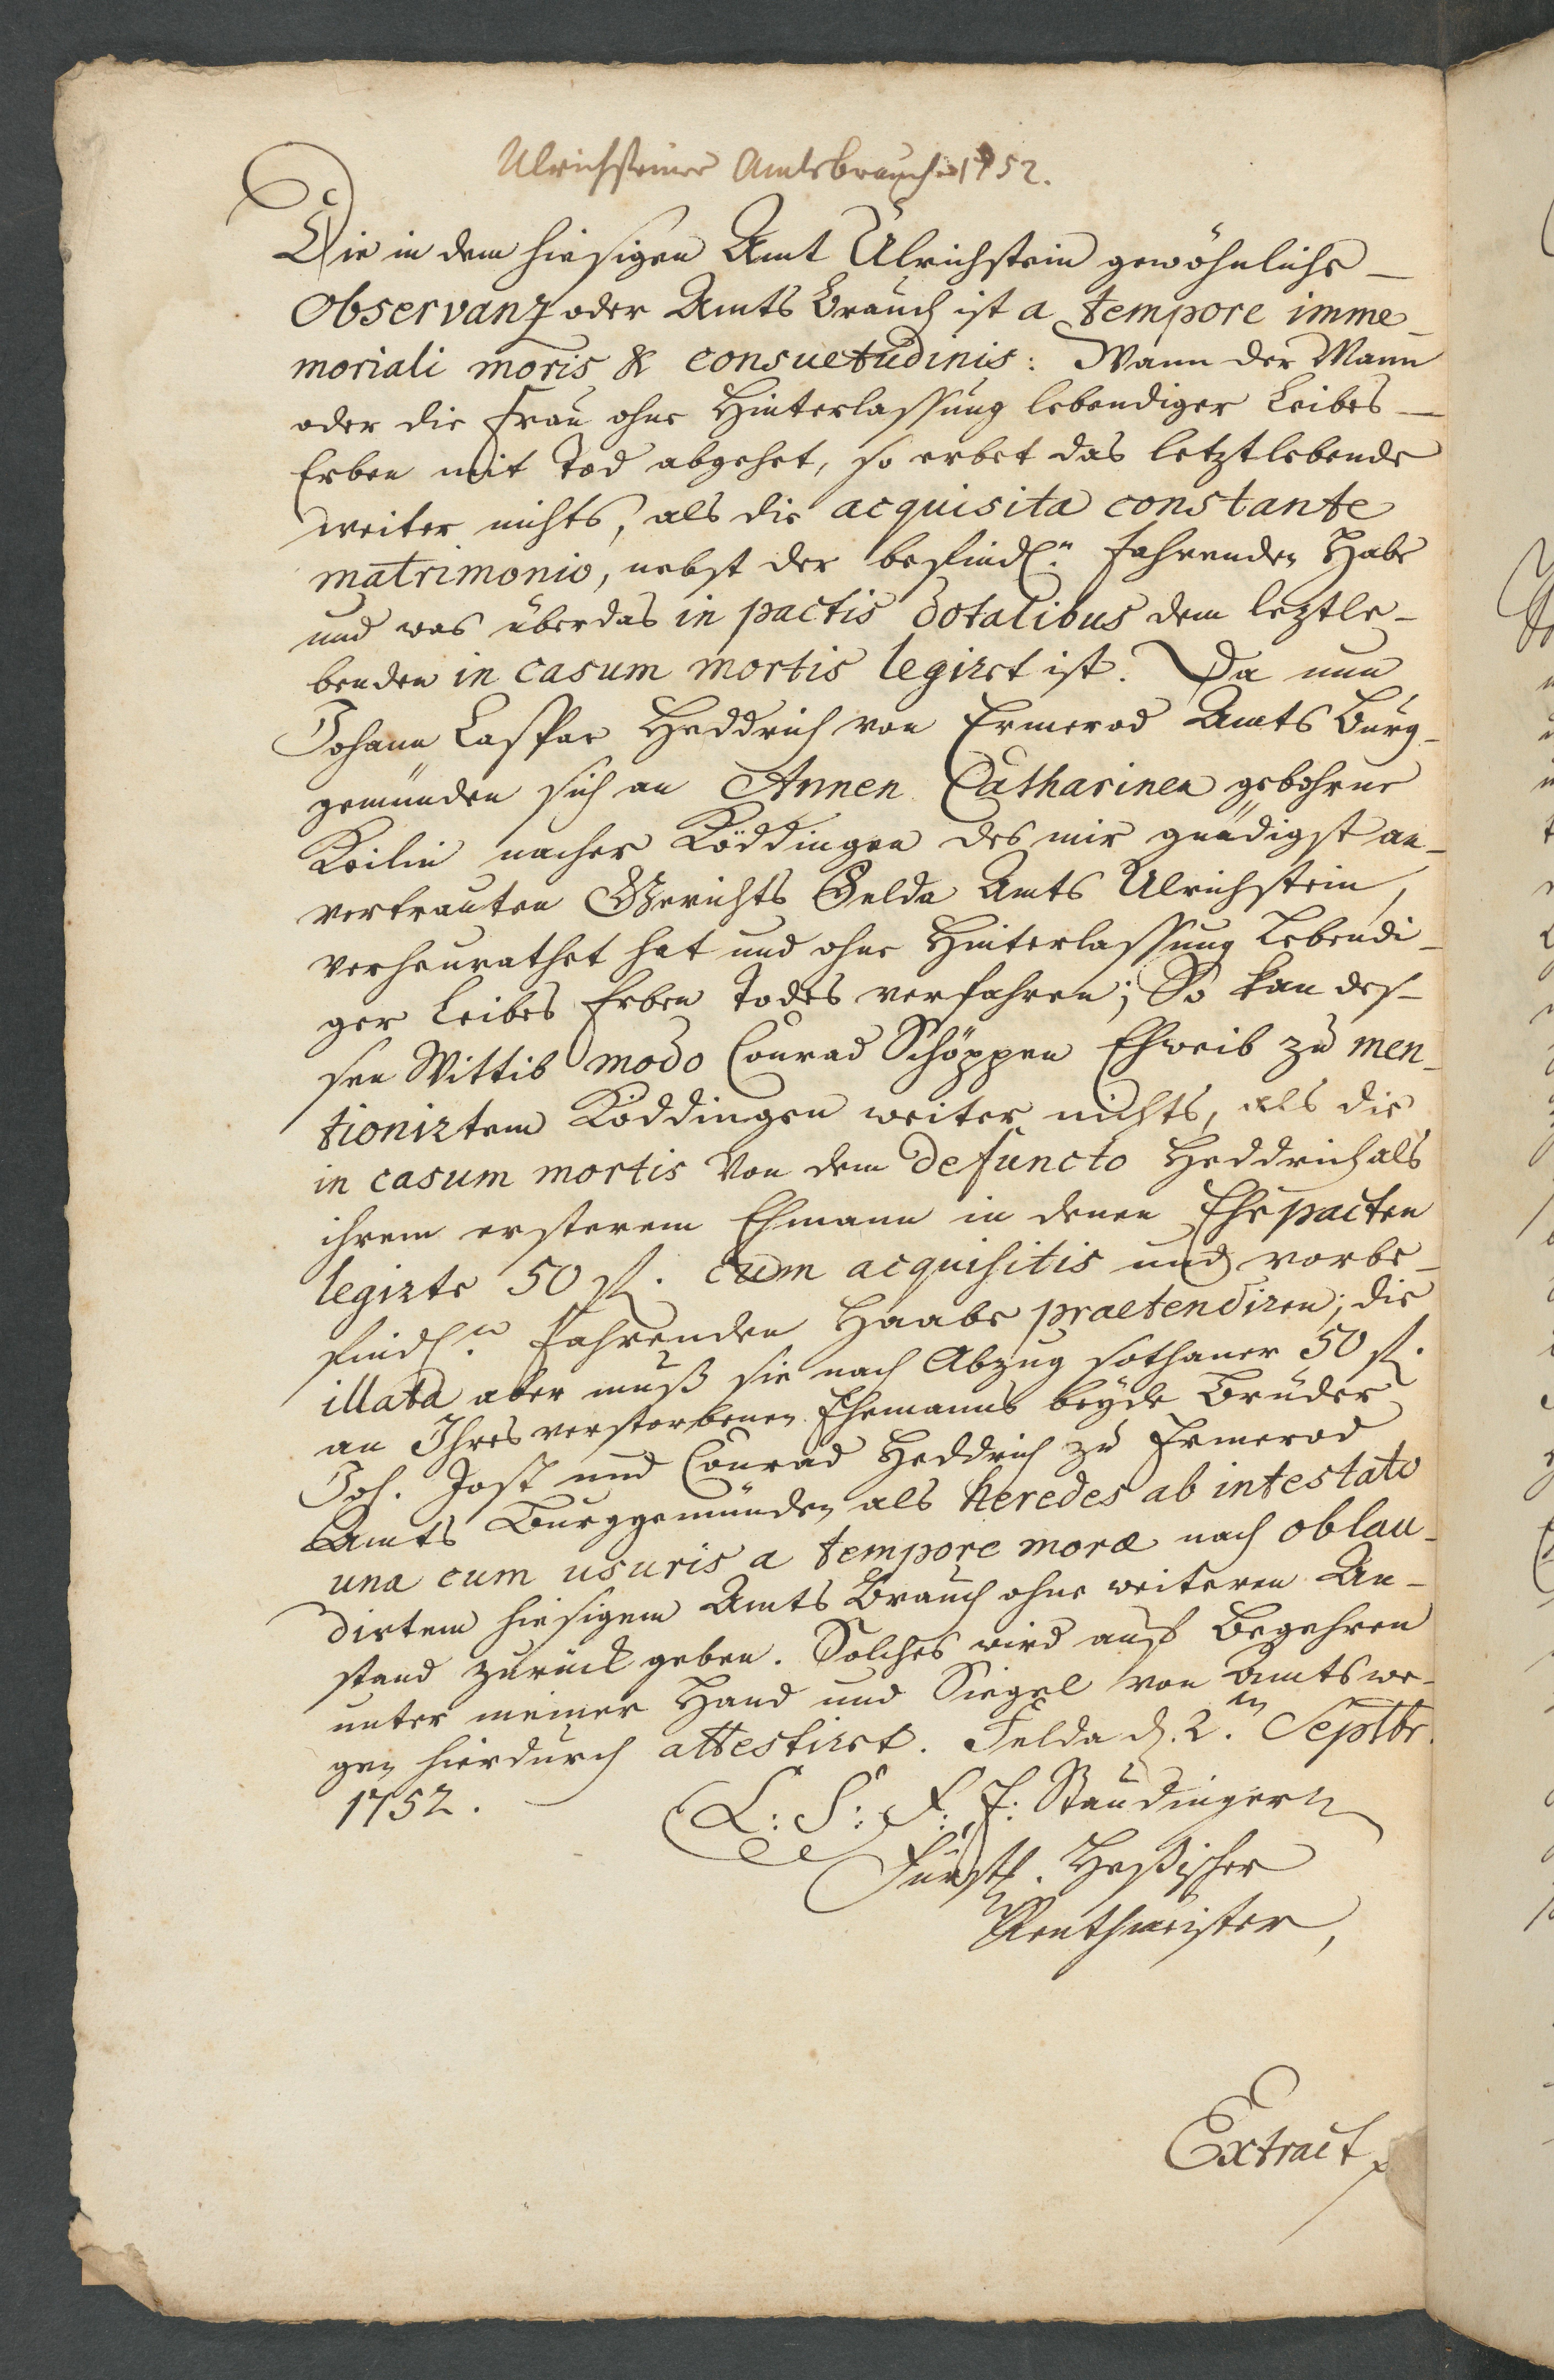 Ulrichsteiner Amtsbrauch 1752.
Die in dem hiesigen Amt Ulrichstein gewöhnliche
Observanz oder Amts Brauch ist a tempore imme-
moriali moris & consuetudinis: Wann der Mann
oder die Frau ohne Hinterlassung lebendiger Leibes
Erben mit Tod abgehet, so erbet das letztlebende
weiter nichts, als die acquisita constante
matrimonio, nebst der befindl.n fahrenden Habe
und was überdas in pactis dotalibus dem leztle-
benden in casum mortis legiret ist. Da nun
Johann Caspar Heddrich von Ermerod Amts Burg-
gemünden sich an Annen Catharinen gebohrne
Keilin nacher Köddingen des mir gnädigst an-
vertrauten Gerichts Felda Amts Ulrichstein,
verheurathet hat und ohne Hinterlassung Lebendi-
ger Leibes Erben Todes verfahren; So kan des-
sen Wittib modo Conrad Schöppen Eheweib zu men-
tionirtem Köddingen weiter nichts, als die
in casum mortis von dem defuncto Heddrich als
ihrem ersterem Ehmann in denen Ehepacten
legirte 50 fl. cum acquisitis und vorbe-
findl.n fahrenden Haabe praetendiren; die
illata aber muß sie nach Abzug sothaner 50 fl.
an Ihres verstorbenen Ehemanns beyde Brüder
Joh. Jost und Conrad Heddrich zu Ermerod
Amts Burggemünden als heredes ab intestato
una cum usuris a tempore moræ nach oblau-
dirtem hiesigem Amts Brauch ohne weiteren An-
stand zurück geben. Solches wird auf Begehren
unter meiner Hand und Siegel von Amtswe-
gen hierdurch attestiret. Felda d. 2.ten Septbr.
1752.
(L: S: F. F: Staudinger
Fürstl. Heßischer
Renthmeister,
Extract